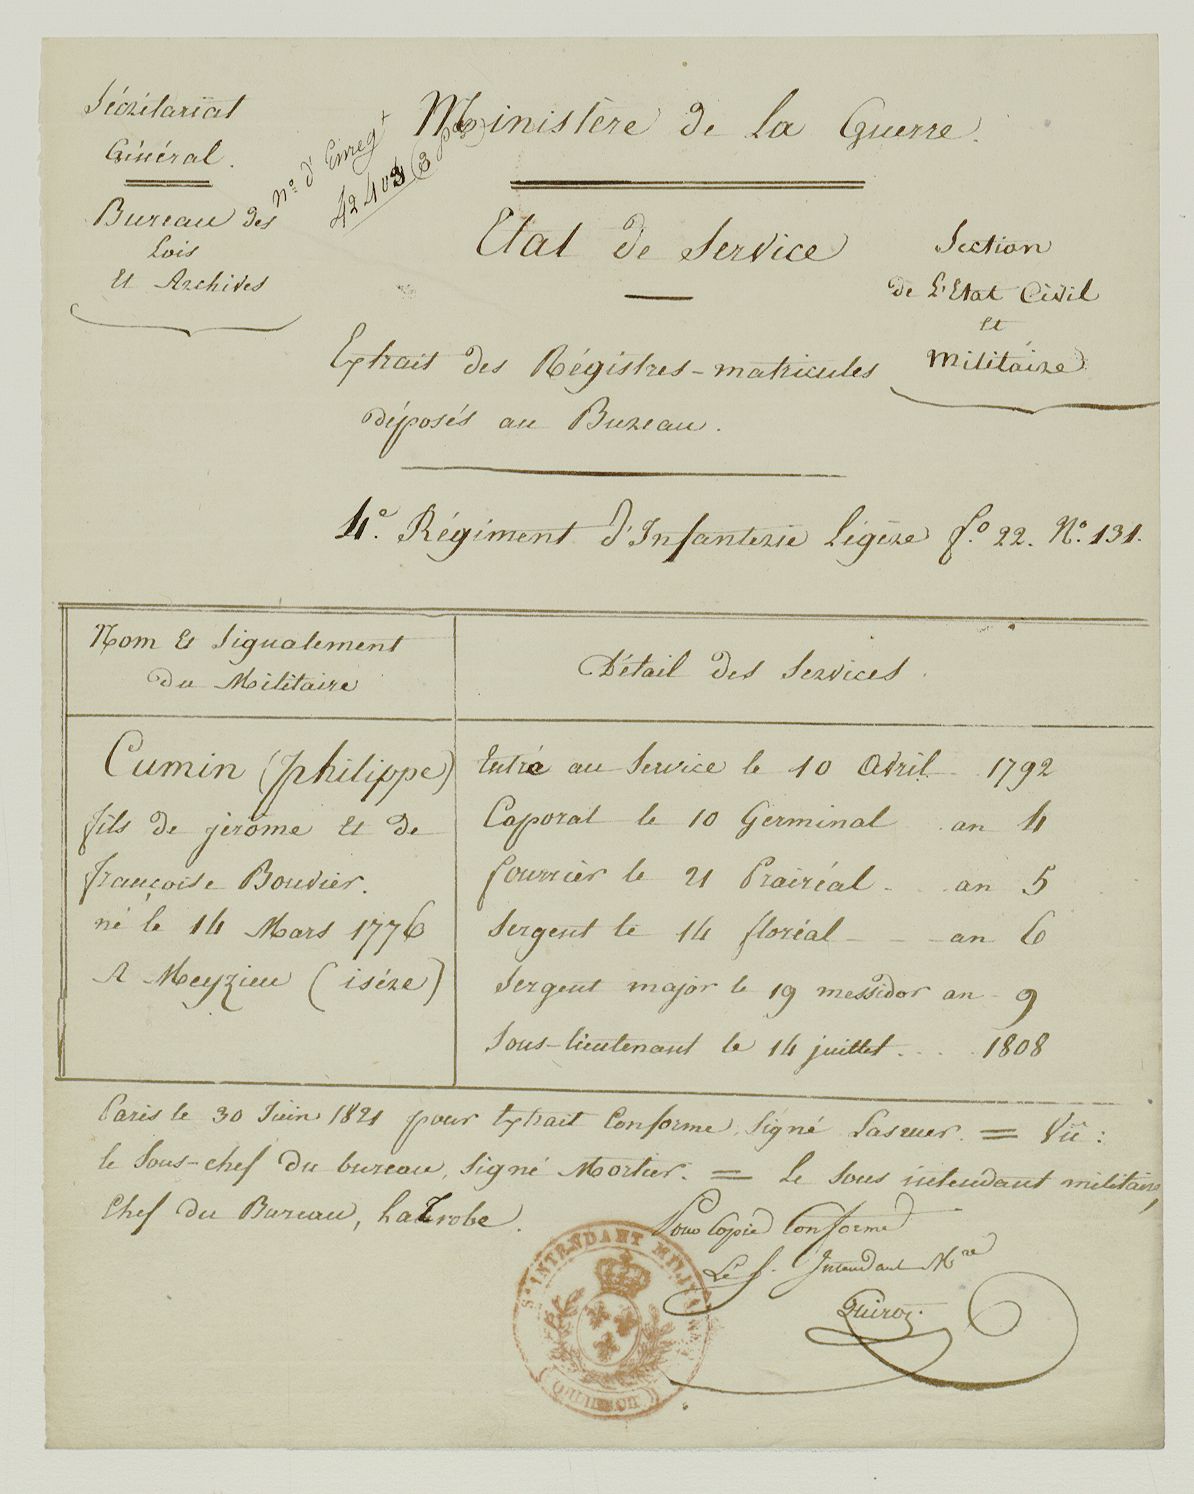 Sécrétariat
Général.
Bureau des
Lois
Et Archives
N.º d'Enreg.t
42403 (3 p.
Ministère de la Guerre.
Etat de Service
Section
de L'Etat Civil
et
Militaire
Extrait des Régistres-matricules
déposés au Bureau.
4.e Régiment d'Infanterie Légère f.º 22. N.º 131.
Nom Et Signalement
Du Militaire
Détail des Services.
Cumin (philippe)
fils de jérôme Et de
françoise Bouvier.
né le 14 Mars 1776
A Meyzieu (isére)
Entré au Service le 10 Avril 1792
Caporal le 10 Germinal an 4
fourrier le 21 Prairéal an 5
Sergent le 14 floréal an 6
Sergent major le 19 messidor an 9
Sous-lieutenant le 14 juillet 1808
Paris le 30 Juin 1821 pour Extrait Conforme, Signé Lasuer. = Vü :
le Sous-chef du bureau, Signé Mortier. = Le Sous intendant militaire,
Chef du Bureau, LaTrobe.
Pour Copie Conforme
Le S. Intendant M.re
Quiroz.
S. INTENDANT MILITAIRE